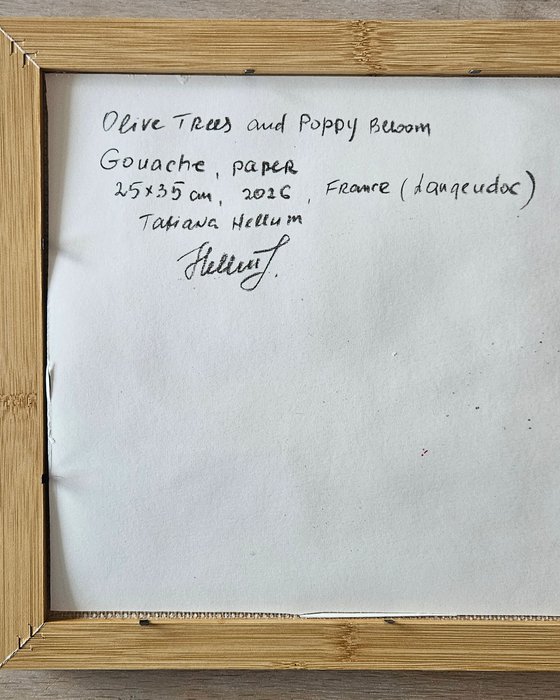 Olive Trees and Poppy Bloom
Gouache, paper
25x35 cm, 2026, France (Langeudoc)
Tatiana Hellum